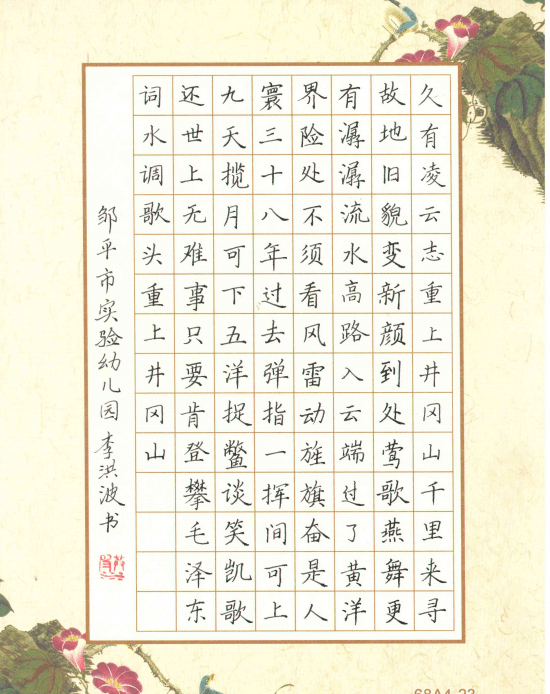 久有凌云志重上井冈山千里来寻
故地旧貌变新颜到处莺歌燕舞更
有潺潺流水高路入云端过了黄洋
界险处不须看风雷动旌旗奋是人
寰三十八年过去弹指一挥间可上
九天揽月可下五洋捉鳖谈笑凯歌
还世上无难事只要肯登攀毛泽东
词水调歌头重上井冈山
邹平市实验幼儿园李洪波书
68A4-23